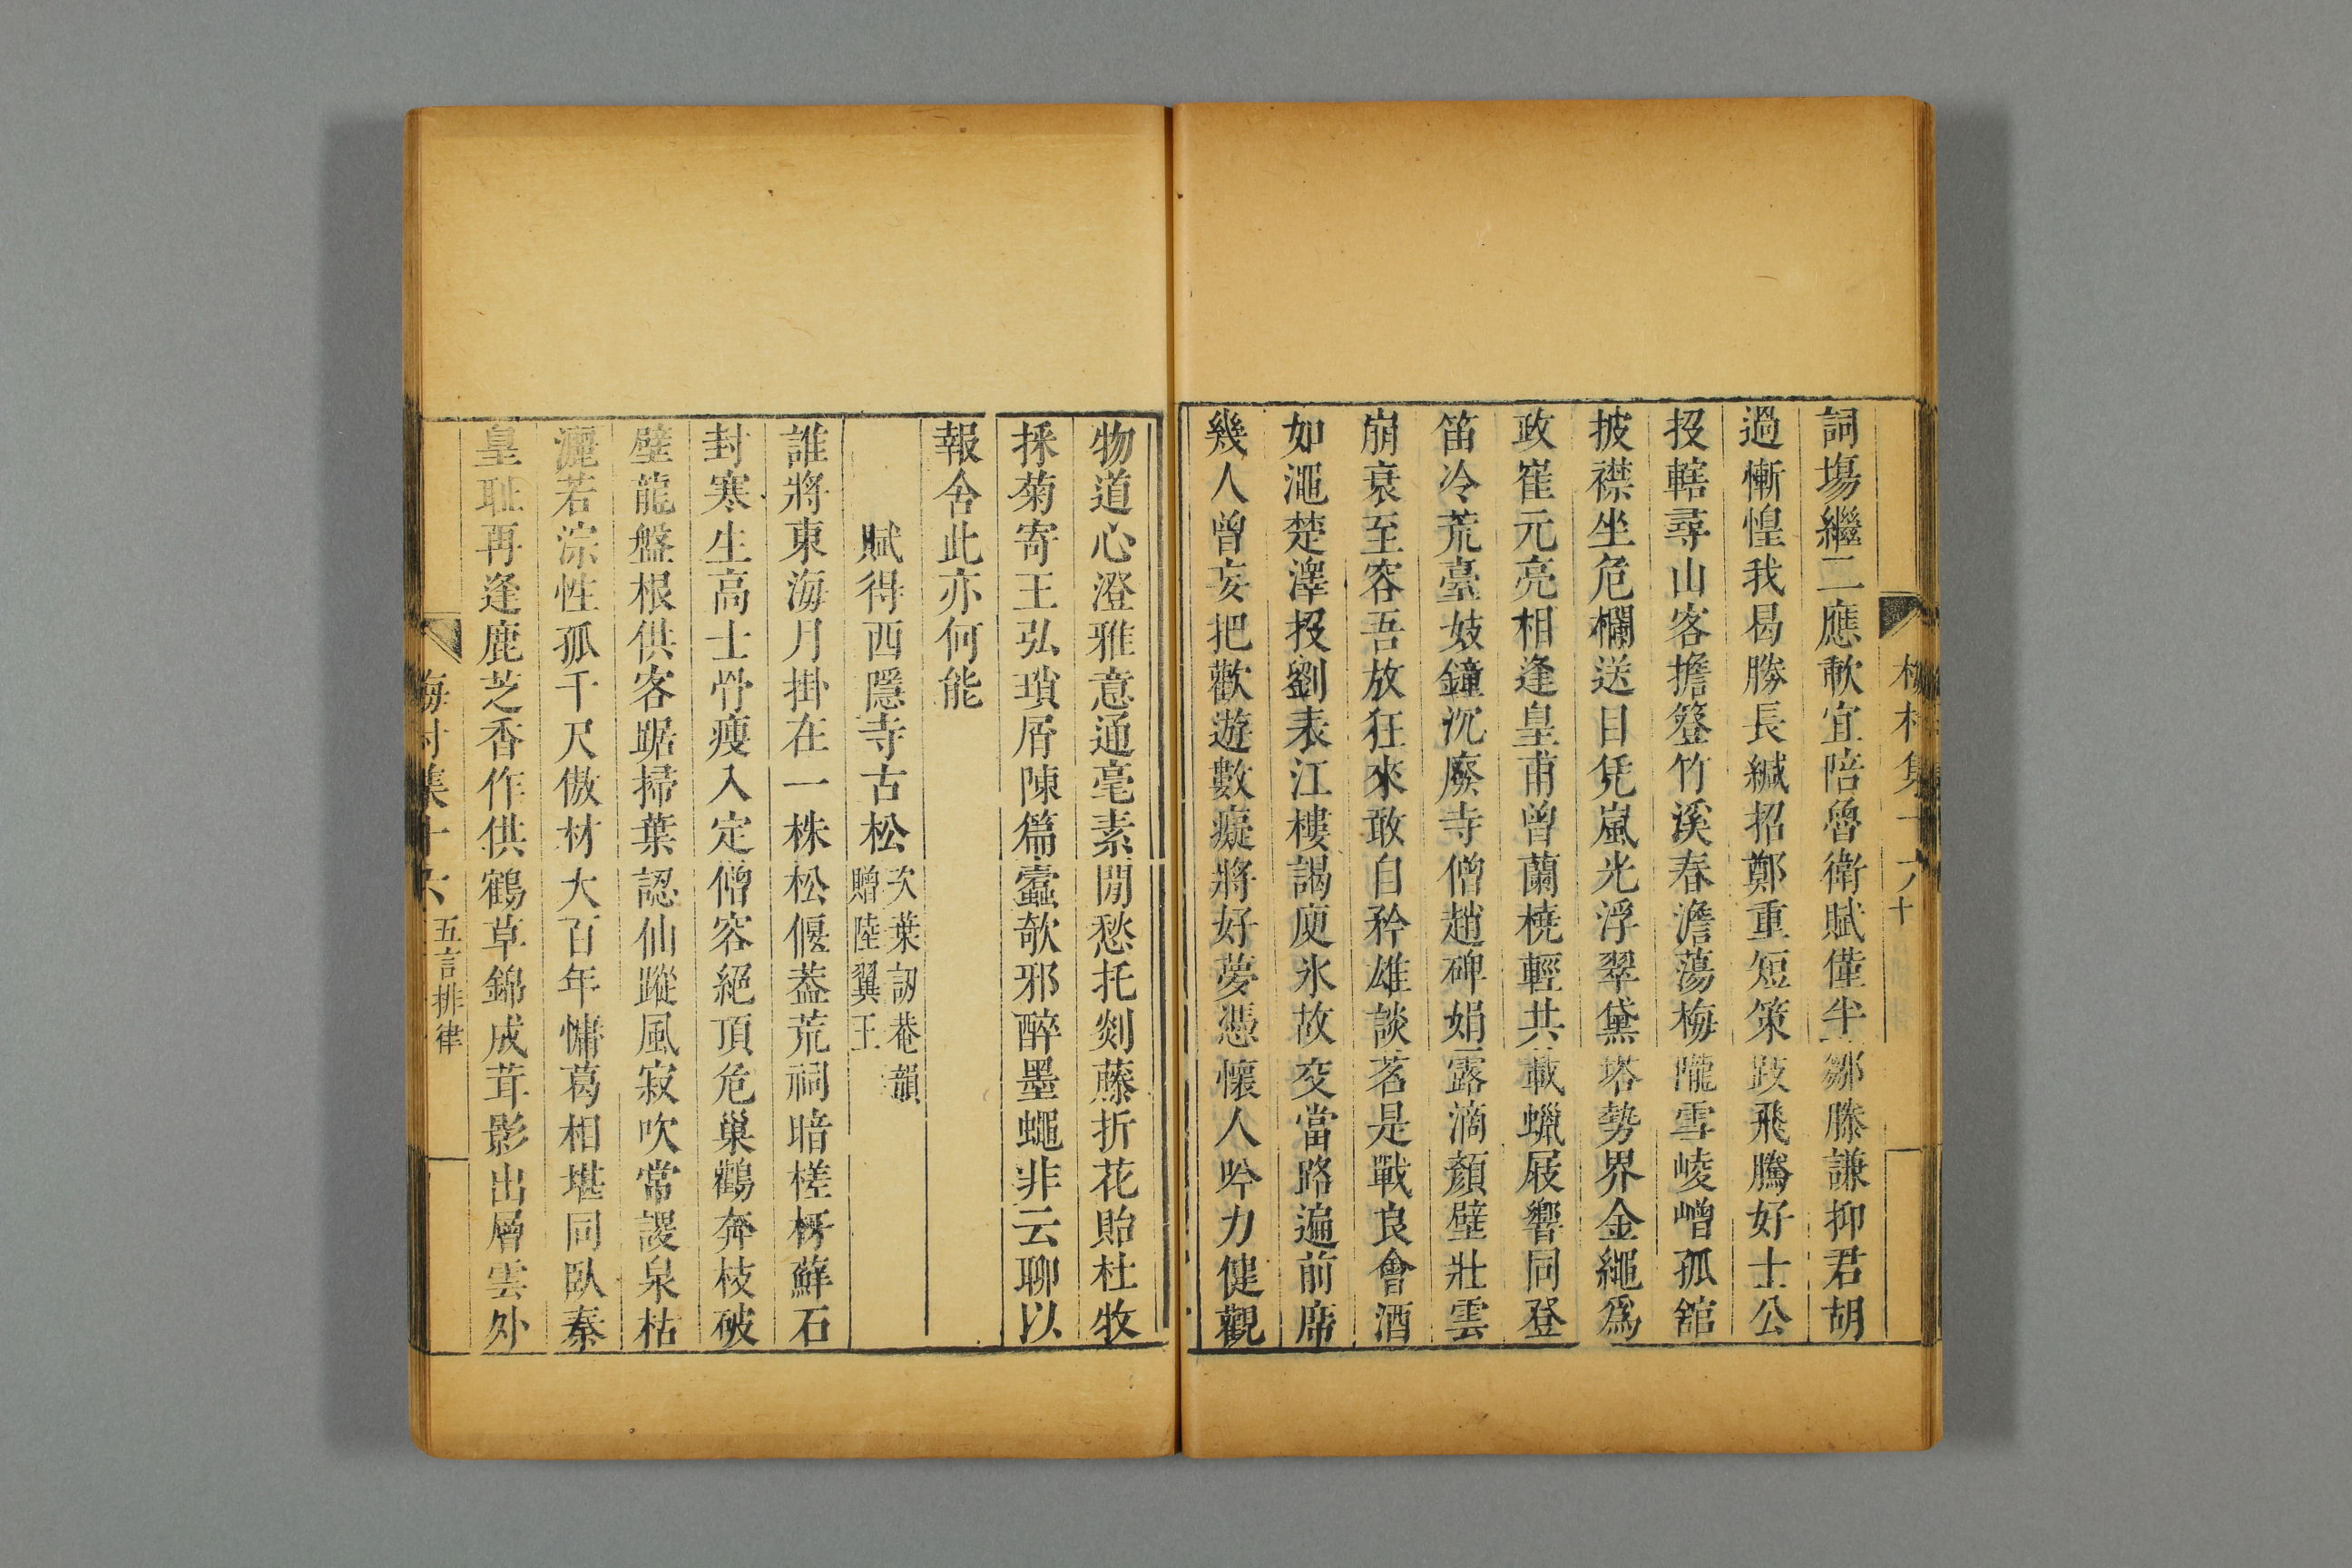 詞塲繼二應軟宜陪魯衛賦僅半鄒滕謙抑君胡
過慚惶我曷勝長緘招鄭重短策跂飛騰好士公
投轄尋山客擔簦竹溪春澹蕩梅隴雪崚嶒孤舘
披襟坐危欄送目凭嵐光浮翠黛塔勢界金繩爲
政崔元亮相逢皇甫曾蘭橈輕共載蠟屐響同登
笛冷荒臺妓鐘沉廢寺僧趙碑娟露滴顏壁壯雲
崩衰至容吾放狂來敢自矜雄談茗是戰良會酒
如澠楚澤投劉表江樓謁庾氷故交當路遍前席
幾人曾妄把歡遊數癡將好夢憑懷人吟力健觀
物道心澄雅意通毫素閒愁托剡藤折花貽杜牧
採菊寄王弘瑣屑陳篇蠹欹邪醉墨蠅非云聊以
報舍此亦何能
賦得西隱寺古松次葉訒菴韻贈陸翼王
誰將東海月掛在一株松偃葢荒祠暗槎枒蘚石
封寒生高士骨瘦入定僧容絕頂危巢鸛奔枝破
壁龍盤根供客踞掃葉認仙蹤風寂吹常謖泉枯
灑若淙性孤千尺傲材大百年慵葛相堪同臥秦
皇耻再逢鹿芝香作供鶴草錦成茸影出層雲外
梅村集十六
五言排律
十